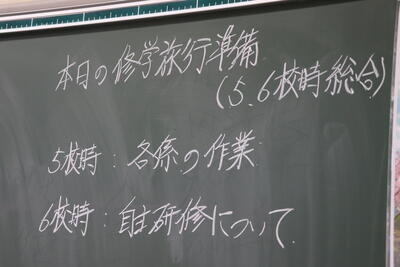 本日の修学旅行準備
(5.6校時総合)
5校時:各係の作業
6校時:自主研修について